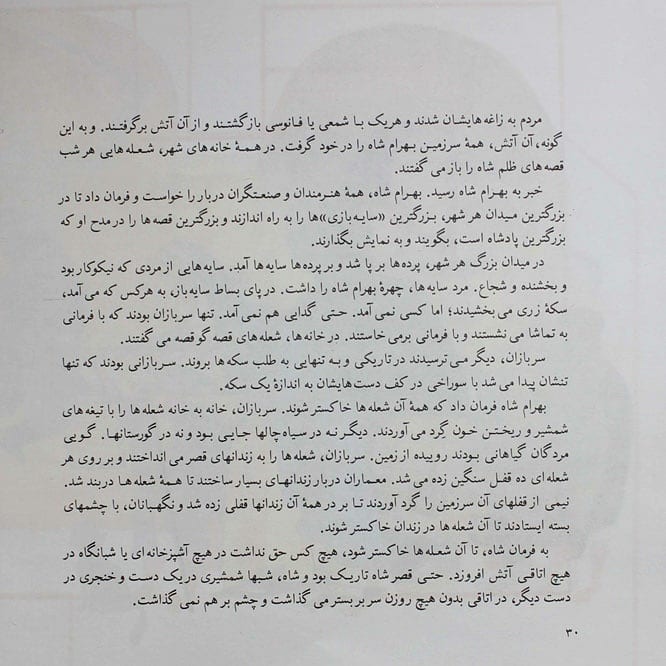 مردم به زاغه‌هایشان شدند و هریک با شمعی یا فانوسی بازگشتند و از آن آتش برگرفتند. و به این
گونه، آن آتش، همهٔ سرزمین بهرام شاه را در خود گرفت. در همهٔ خانه‌های شهر، شعله‌هایی هر شب
قصه‌های ظلم شاه را باز می گفتند.
خبر به بهرام شاه رسید. بهرام شاه، همهٔ هنرمندان و صنعتگران دربار را خواست و فرمان داد تا در
بزرگترین میدان هر شهر، بزرگترین «سایه‌بازی»ها را به راه اندازند و بزرگترین قصه‌ها را در مدح او که
بزرگترین پادشاه است، بگویند و به نمایش بگذارند.
در میدان بزرگ هر شهر، پرده‌ها بر پا شد و بر پرده‌ها سایه‌ها آمد. سایه‌هایی از مردی که نیکوکار بود
و بخشنده و شجاع. مرد سایه‌ها، چهرهٔ بهرام شاه را داشت. در پای بساط سایه‌باز، به هرکس که می آمد،
سکهٔ زری می بخشیدند؛ اما کسی نمی آمد. حتی گدایی هم نمی آمد. تنها سربازان بودند که با فرمانی
به تماشا می نشستند و با فرمانی برمی خاستند. در خانه‌ها، شعله‌های قصه گو قصه می گفتند.
سربازان، دیگر می ترسیدند در تاریکی و به تنهایی به طلب سکه‌ها بروند. سربازانی بودند که تنها
تنشان پیدا می شد با سوراخی در کف دست‌هایشان به اندازهٔ یک سکه.
بهرام شاه فرمان داد که همهٔ آن شعله‌ها خاکستر شوند. سربازان، خانه به خانه شعله‌ها را با تیغه‌های
شمشیر و ریختن خون گِرد می آوردند. دیگر نه در سیاه‌چالها جایی بود و نه در گورستانها. گویی
مردگان گیاهانی بودند روییده از زمین. سربازان، شعله‌ها را به زندانهای قصر می انداختند و بر روی هر
شعله‌ای ده قفل سنگین زده می شد. معماران دربار زندانهای بسیار ساختند تا همهٔ شعله‌ها دربند شد.
نیمی از قفلهای آن سرزمین را گرد آوردند تا بر در همهٔ آن زندانها قفلی زده شد و نگهبانان، با چشمهای
بسته ایستادند تا آن شعله‌ها در زندان خاکستر شوند.
به فرمان شاه، تا آن شعله‌ها خاکستر شود، هیچ کس حق نداشت در هیچ آشپزخانه‌ای یا شبانگاه در
هیچ اتاقی آتش افروزد. حتی قصر شاه تاریک بود و شاه، شبها شمشیری در یک دست و خنجری در
دست دیگر، در اتاقی بدون هیچ روزن سر بر بستر می گذاشت و چشم بر هم نمی گذاشت.
۳۰